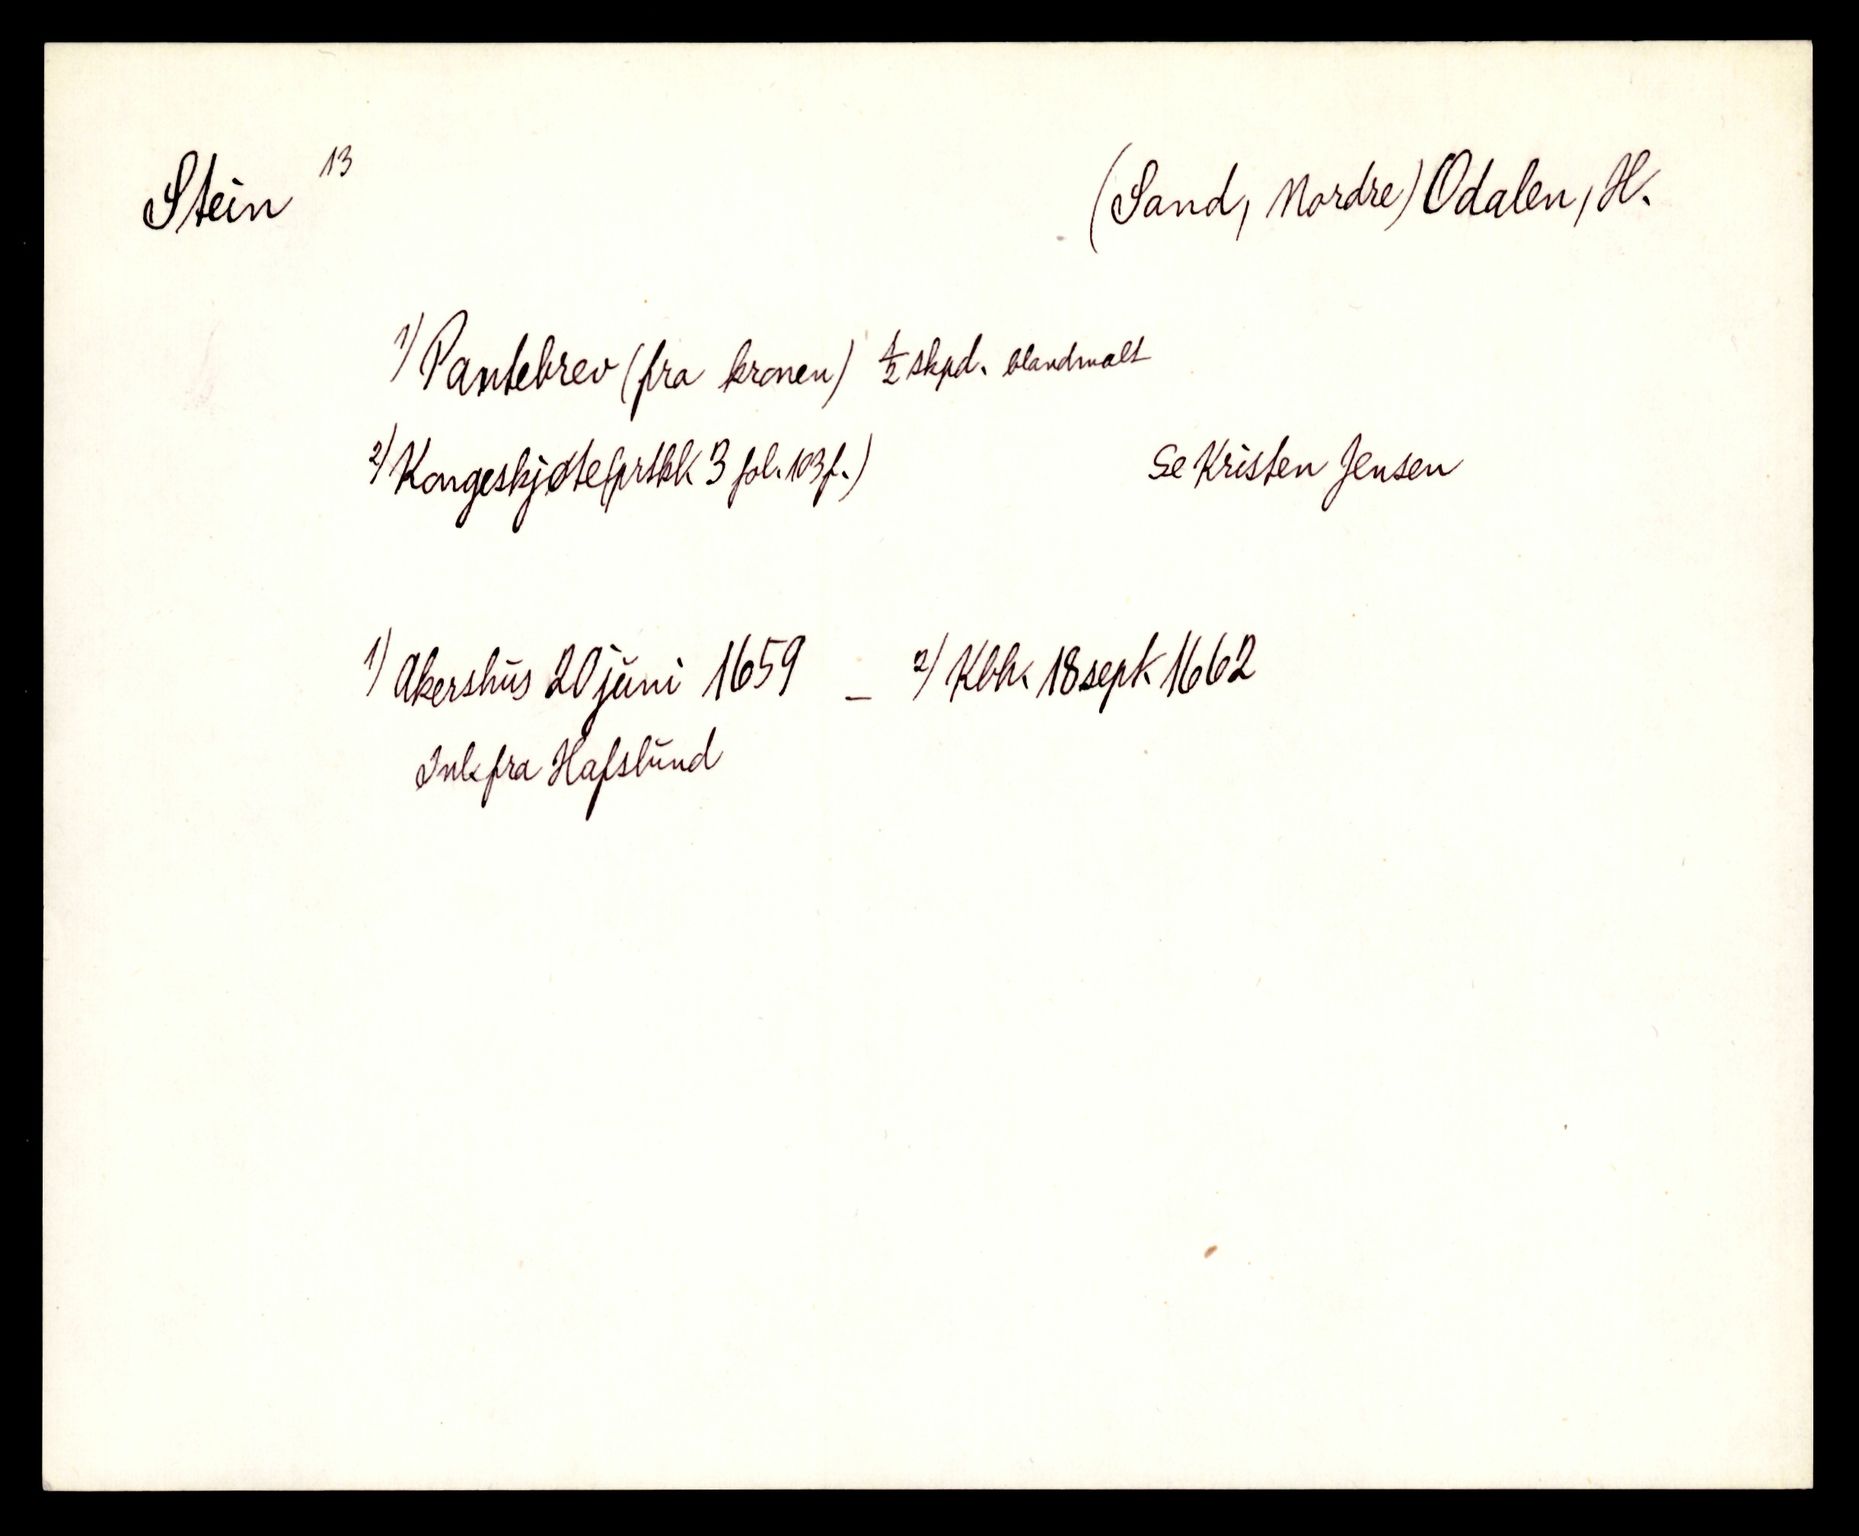 Stein 13 (Sand, Nordre) Odalen, H.
1) Pantebrev (fra kronen) 1/2 skpd. blandmalt
2) Kongeskjøte (prtbk 3 fol. 103 f.) Se Kristen Jensen
1) Akershus 20 juni 1659 – 2) Kbh. 18 sept 1662
Ink. fra Hafslund